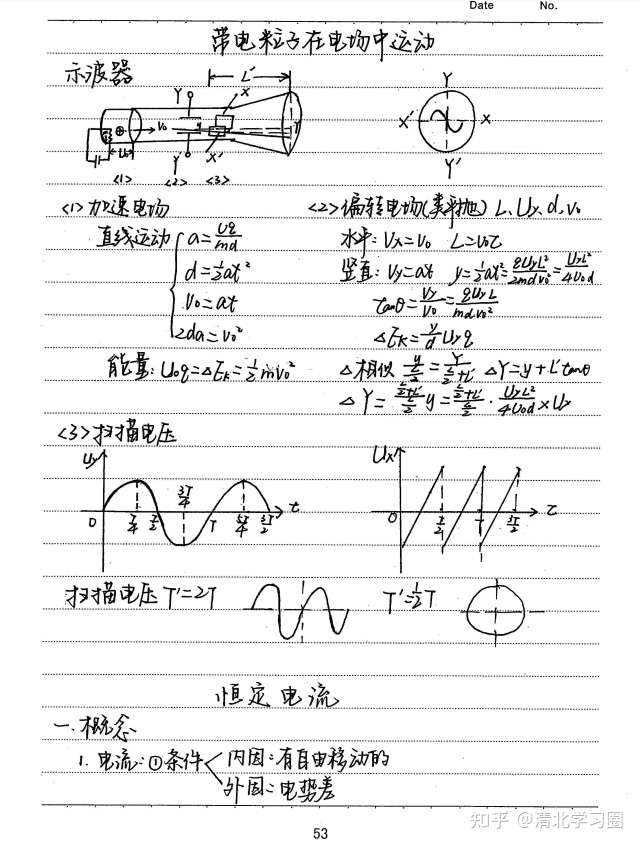 Date No.
带电粒子在电场中运动
示波器
L' X Y
Y V₀ X' Y' U₀
<1> <2> <3>
Y X' X Y'
<1>加速电场
直线运动 a=Uq/md
d=½at²
V₀=at
2da=V₀²
能量:U₀q=ΔEₖ=½mV₀²
<2>偏转电场(类平抛) L、Uy、d、V₀
水平:Vx=V₀ L=V₀t
竖直:Vy=at y=½at²=qUyL²/2mdV₀²=UyL²/4U₀d
tanθ=Vy/V₀=qUyL/mdV₀²
ΔEₖ=y/d Uyq
△相似 y/(L/2)=Y/(L/2+L') △Y=y+L'tanθ
△Y=(L/2+L')/(L/2) y=(L/2+L')/(L/2)·UyL²/4U₀d
<3>扫描电压
Uy 0 T/4 T/2 3T/4 T 5T/4 3T/2 t
Ux 0 T/2 T 3T/2 t
扫描电压T'=2T T'=½T
恒定电流
一.概念
1.电流:①条件 内因:有自由移动的
外因:电势差
53
知乎 @清北学习圈